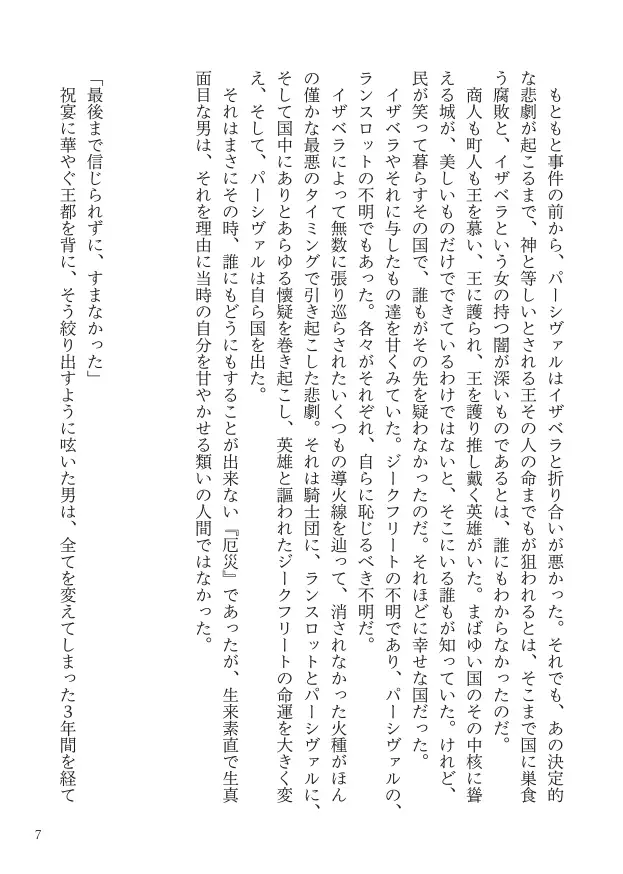 もともと事件の前から、パーシヴァルはイザベラと折り合いが悪かった。それでも、あの決定的
な悲劇が起こるまで、神と等しいとされる王その人の命までもが狙われるとは、そこまで国に巣食
う腐敗と、イザベラという女の持つ闇が深いものであるとは、誰にもわからなかったのだ。
　商人も町人も王を慕い、王に護られ、王を護り推し戴く英雄がいた。まばゆい国のその中核に聳
える城が、美しいものだけでできているわけではないと、そこにいる誰もが知っていた。けれど、
民が笑って暮らすその国で、誰もがその先を疑わなかったのだ。それほどに幸せな国だった。
　イザベラやそれに与したもの達を甘くみていた。ジークフリートの不明であり、パーシヴァルの、
ランスロットの不明でもあった。各々がそれぞれ、自らに恥じるべき不明だ。
　イザベラによって無数に張り巡らされたいくつもの導火線を辿って、消されなかった火種がほん
の僅かな最悪のタイミングで引き起こした悲劇。それは騎士団に、ランスロットとパーシヴァルに、
そして国中にありとあらゆる懐疑を巻き起こし、英雄と謳われたジークフリートの命運を大きく変
え、そして、パーシヴァルは自ら国を出た。
　それはまさにその時、誰にもどうにもすることが出来ない『厄災』であったが、生来素直で生真
面目な男は、それを理由に当時の自分を甘やかせる類いの人間ではなかった。
「最後まで信じられずに、すまなかった」
　祝宴に華やぐ王都を背に、そう絞り出すように呟いた男は、全てを変えてしまった３年間を経て
7